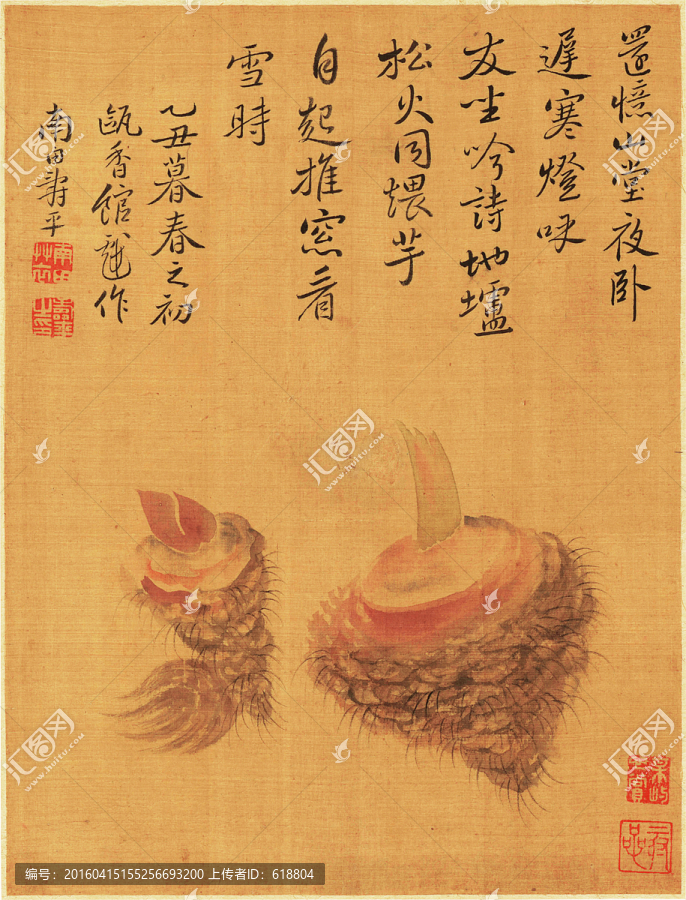 還憶山堂夜卧
遲寒燈呼
友坐吟詩地壚
松火同煨芋
自起推窓看
雪時
乙丑暮春之初
甌香館戲作
南田壽平
汇图网
www.huitu.com
编号：20160415155256693200 上传者ID：618804